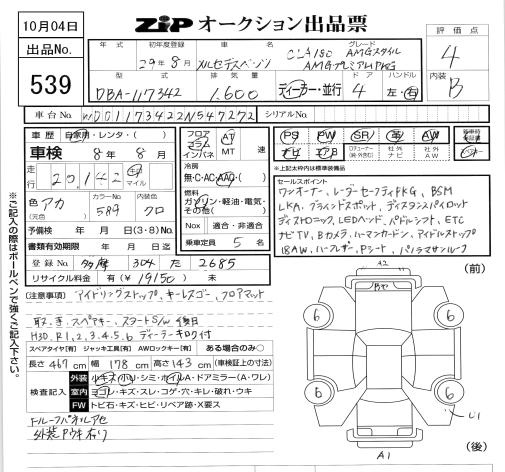 10月04日
ZIP オークション出品票
評価点
4
内装
B
出品No.
539
年式
初年度登録
車名
グレード
29年8月
メルセデスベンツ
CLA180 AMGスタイル
AMGプレミアムPKG
型式
排気量
ドア
ハンドル
DBA-117342
1,600
ディーラー・並行
4
左・右
車台No.
WDD1173422N547272
シリアルNo.
車歴 自家用・レンタ・( )
車検 8年8月
走行 20,142 km マイル
色 アカ
(元色)
カラーNo.
589
内装色
クロ
予備検 年 月 日(3・8)No.
書類有効期限 年 月 日迄
登録No. 多摩 304 た 2685
リサイクル料金 有(¥19150) 未
フロア
コラム
インパネ
AT
MT
速
冷房
無・C・AC・AAC・( )
燃料
ガソリン・軽油・電気・
その他( )
Nox 適合・非適合
乗車定員 5 名
PS PW SR 革 AW
ナビ エアB 社外ナビ 社外AW
新車時保証書
※上記太枠内は標準装備品
セールスポイント
ワンオーナー、レーダーセーフティPKG、BSM
LKA、ブラインドスポット、ディスタンスパイロット
ディストロニック、LEDヘッド、パドルシフト、ETC
ナビTV、Bカメラ、ハーマンカードン、アイドルストップ
18AW、ハーフレザー、Pシート、パノラマサンルーフ
(注意事項) アイドリングストップ、キーレスゴー、フロアマット
取、き、スペアキー、スタートS/W 後日
H30、R1,2,3,4,5,6 ディーラーキロク付
スペアタイヤ[有] ジャッキ工具[有] AWロックキー[有] ある場合のみ○
長さ 467 cm 幅 178 cm 高さ 143 cm (車検証上の寸法)
検査記入
外装 小キズ・小ヘコ・シミ・ホイルA・ドアミラー(A・ワレ)
室内 ヨゴレ・キズ・スレ・コゲ・穴・キレ・破れ・ウキ
FW トビ石・キズ・ヒビ・リペア跡・X要ス
ドルーフパネルアセ
外装ウキ有り
※ご記入の際はボールペンで強くご記入下さい。
(前)
A2
6
6
6
6
U1
A1
(後)